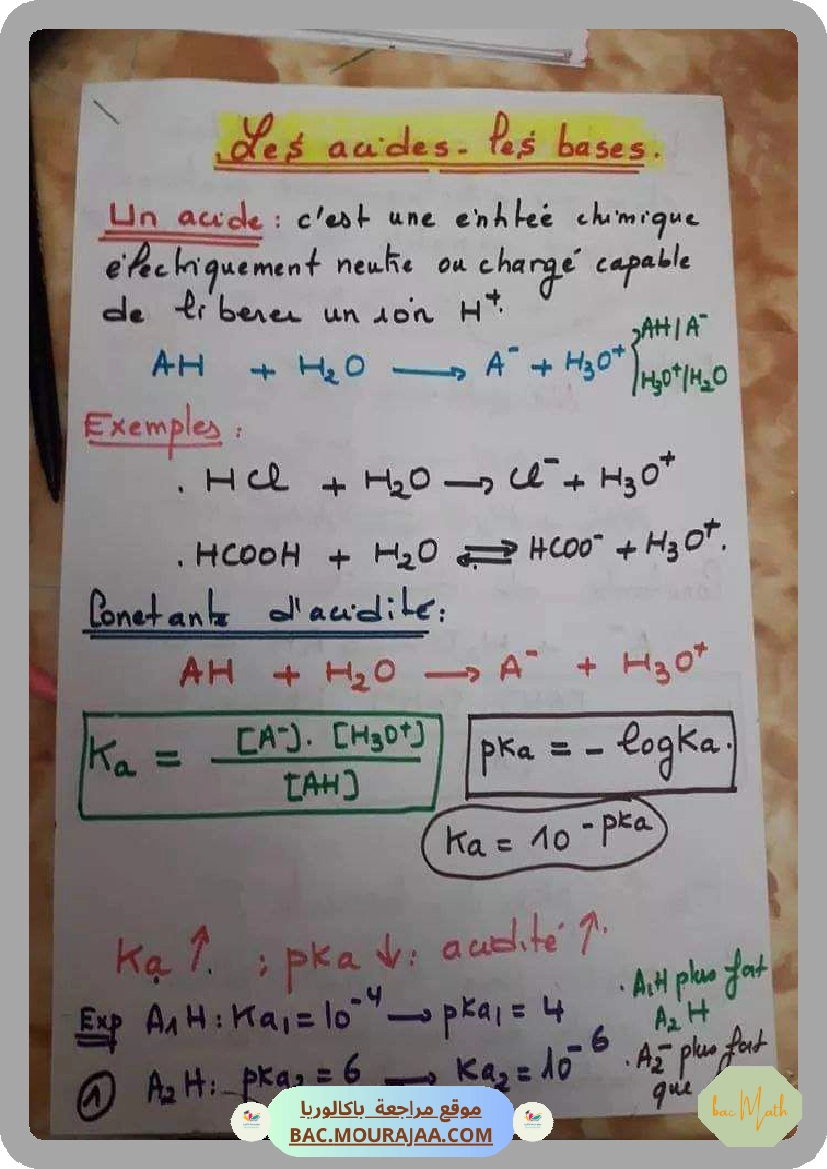 Les acides - les bases.
Un acide : c'est une entiteé chimique
électriquement neutre ou chargé capable
de liberer un ion H⁺.
AH + H₂O ⟶ A⁻ + H₃O⁺ { AH/A⁻
H₃O⁺/H₂O
Exemples :
. HCl + H₂O ⟶ Cl⁻ + H₃O⁺
. HCOOH + H₂O ⇌ HCOO⁻ + H₃O⁺.
Constante d'acidité :
AH + H₂O ⟶ A⁻ + H₃O⁺
Ka = [A⁻]. [H₃O⁺] / [AH]
pKa = - logKa.
Ka = 10^-pKa
Ka ↑. : pKa ↓ : acidité ↑.
Exp A₁H : Ka₁ = 10⁻⁴ ⟶ pKa₁ = 4
. A₁H plus fort
A₂H
① A₂H : pKa₂ = 6 ⟶ Ka₂ = 10⁻⁶
. A₂⁻ plus fort
que
موقع مراجعة باكالوريا
BAC.MOURAJAA.COM
bacMath